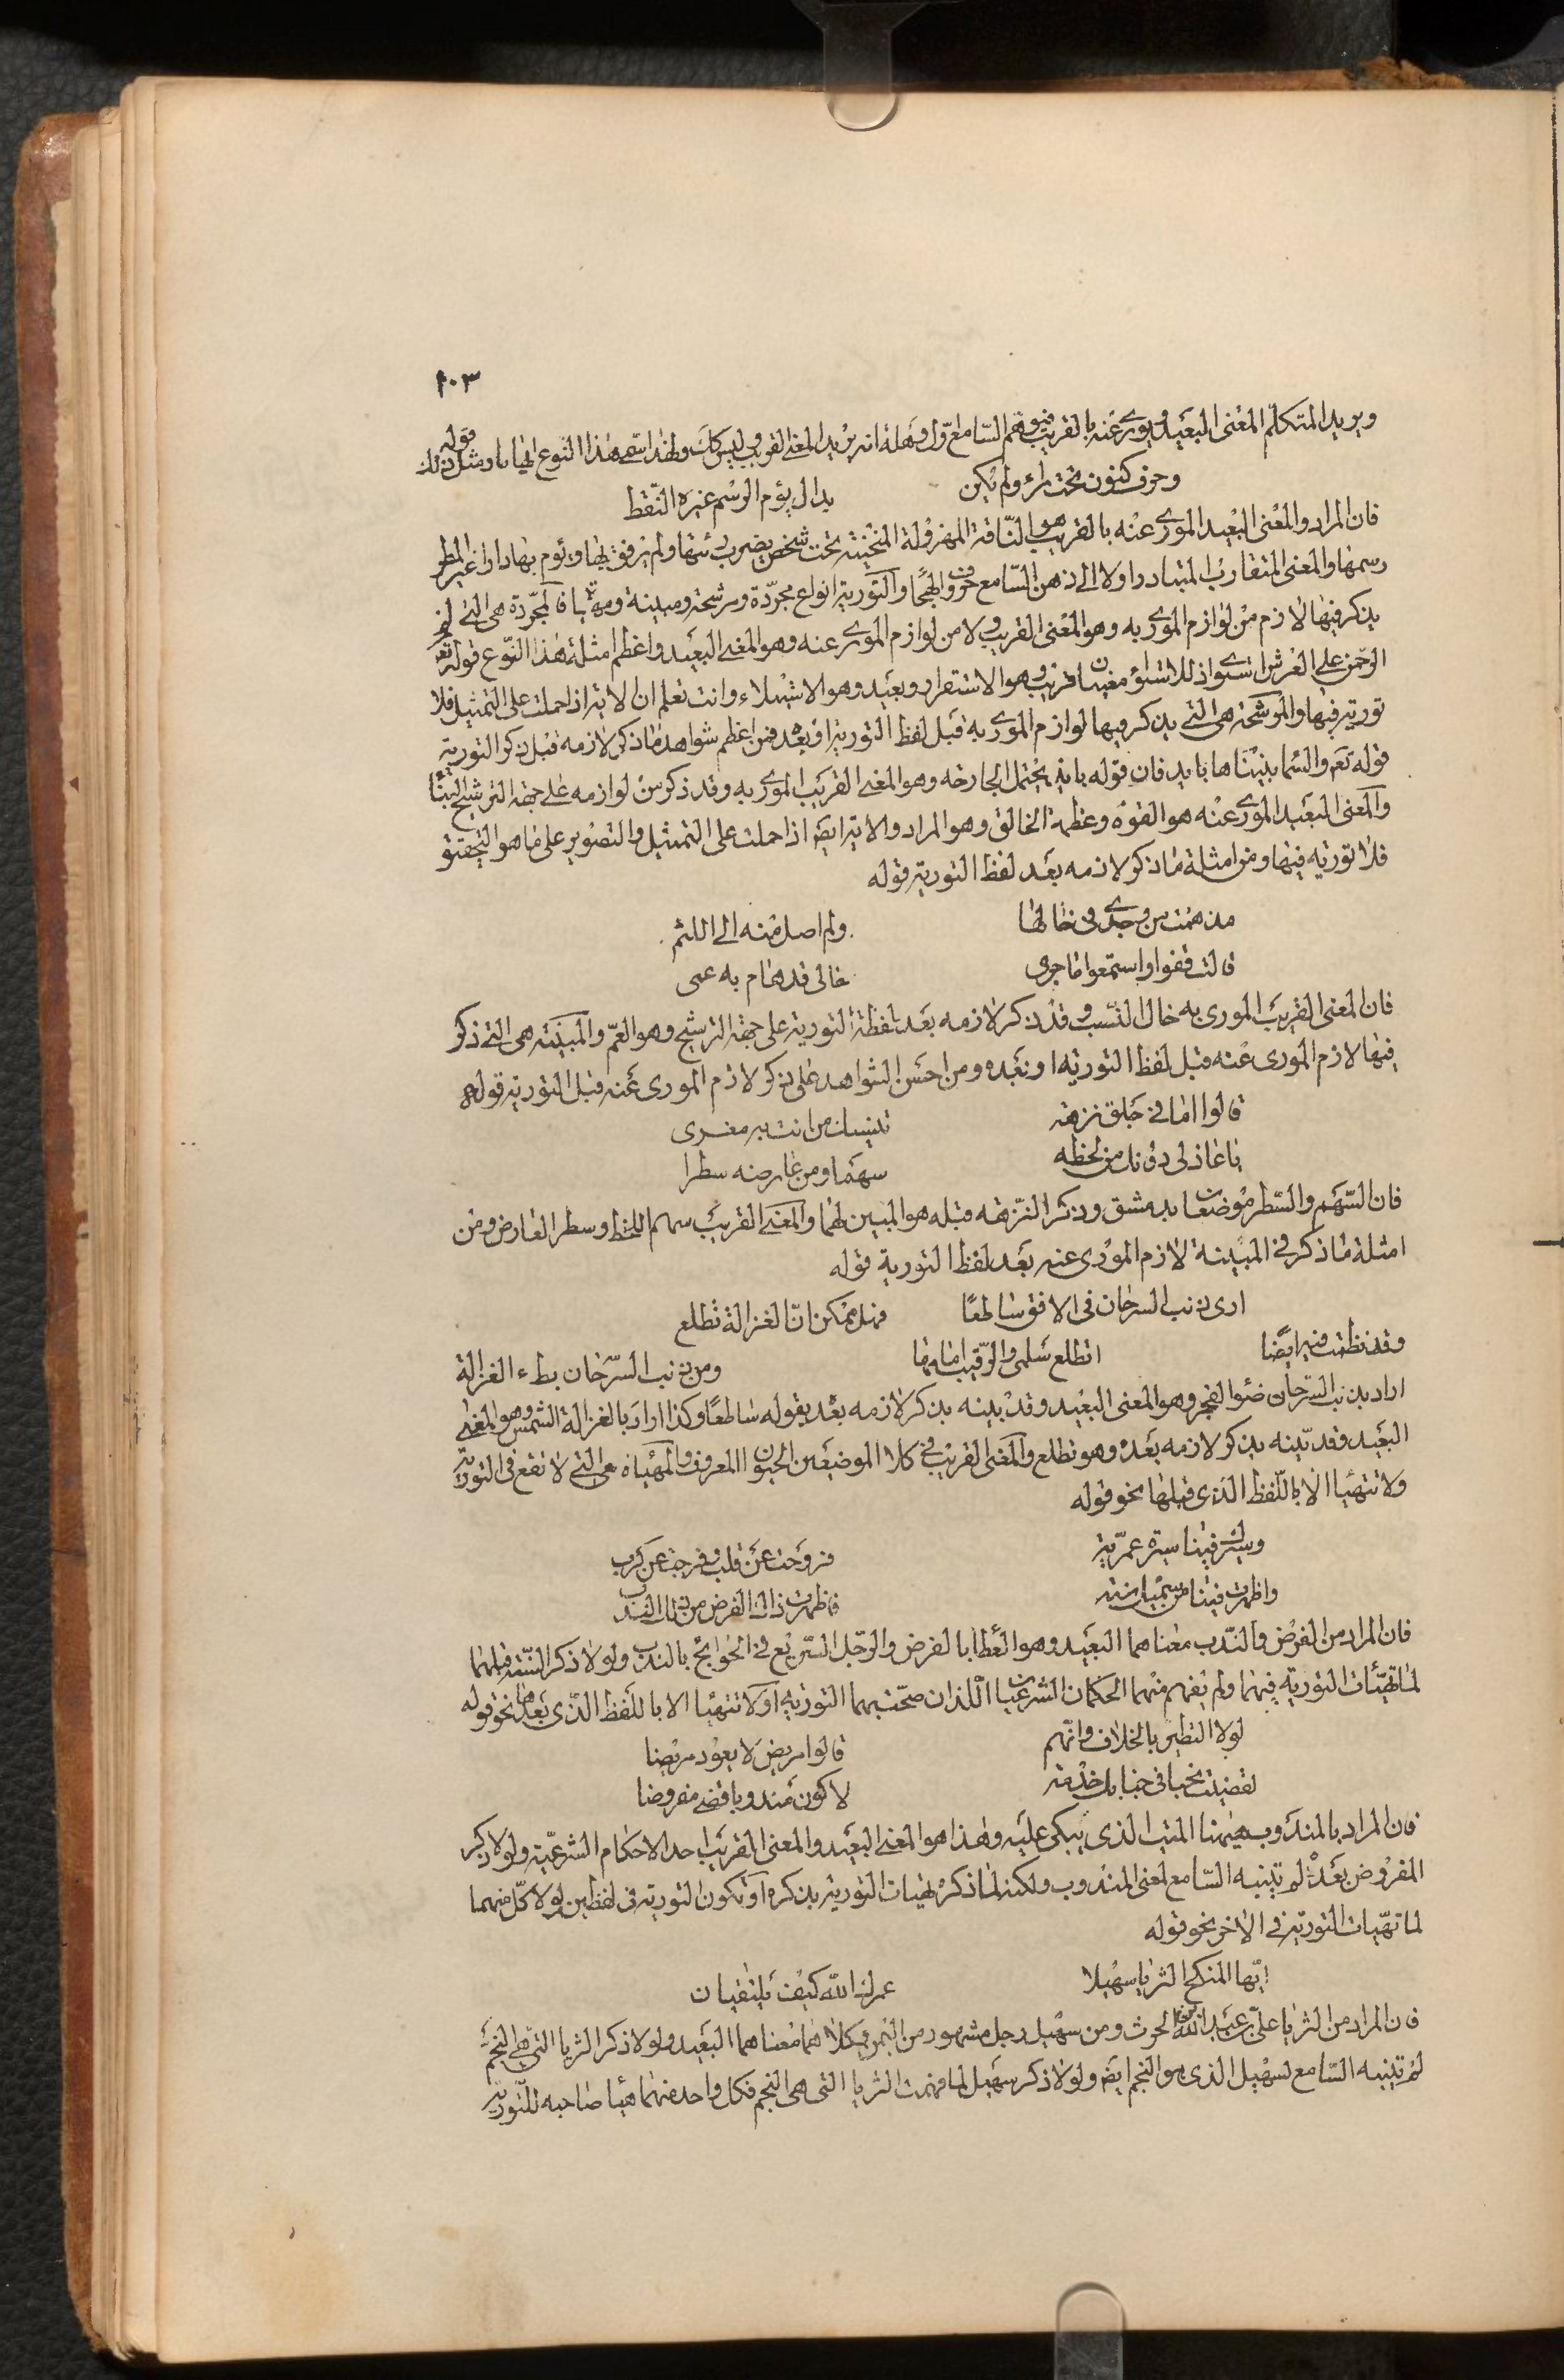 ١٠٣
ويريد المتكلم المعنى البعيد ويورى عنه بالقريب فيوهم السامع اول وهلة انه يريد المعنى القريب وليس كك ولهذا سمى هذا النوع ايهاما ومثل ذلك قوله
وحرف كنون تحت راء ولم يكن
بدال يؤم الرسم غيره النقط
فان المراد والمعنى البعيد المورى عنه بالقريب هو الناقة المهزولة المنحنية تحت شخص يضرب رئتها ولم يرفق بها ويؤم بها دارا غير المطر
رسمها والمعنى المتقارب المتبادر اولا الى ذهن السامع حروف الهجا والتورية انواع مجردة ومرشحة ومبينة ومهيأة فالمجردة هى التى لم
يذكر فيها لازم من لوازم المورى به وهو المعنى القريب ولا من لوازم المورى عنه وهو المعنى البعيد واعظم امثلة هذا النوع قوله تع
الرحمن على العرش استوى اذ للاستواء معنيان قريب وهو الاستقرار وبعيد وهو الاستيلاء وانت تعلم ان الاية اذا حملت على التمثيل فلا
تورية فيها والمرشحة هى التى يذكر فيها لوازم المورى به قبل لفظ التورية او بعده فمن اعظم شواهد ما ذكر لازمه قبل ذكر التورية
قوله تعم والسما بنيناها بايد فان قوله بايد يحتمل الجارحه وهو المعنى القريب المورى به وقد ذكر من لوازمه على جهة الترشيح البنا
والمعنى البعيد المورى عنه هو القوة وعظمة الخالق وهو المراد والاية ايض اذا حملت على التمثيل والتصوير على ما هو التحقيق
فلا تورية فيها ومن امثلة ما ذكر لازمه بعد لفظ التورية قوله
مذ همت من وجدى فى خالها
ولم اصل منه الى اللثم
قالت قفوا واستمعوا ما جرى
خالى قد هام به عمى
فان المعنى القريب المورى به خال النسب وقد ذكر لازمه بعد لفظة التورية على جهة الترشيح وهو العم والمبينة هى التى ذكر
فيها لازم المورى عنه قبل لفظ التورية او بعده ومن احسن الشواهد على ذكر لازم المورى عنه قبل التورية قوله
قالوا اما فى جلق نزهة
تنسيك من انت به مغرى
يا عاذلى دونك من لحظه
سهما ومن عارضه سطرا
فان السهم والسطر موضعان بدمشق وذكر النزهة قبله هو المبين لهما والمعنى القريب سهم اللحظ وسطر العارض ومن
امثلة ما ذكر فى المبينة لازم المورى عنه بعد لفظ التورية قوله
ارى ذنب السرحان فى الافق ساطعا
فهل ممكن ان الغزالة تطلع
وقد نظمت فيه ايضا
اتطلع سلمى والرقيب امامها
ومن ذنب السرحان بطء الغزالة
اراد بذنب السرحان ضوا الفجر وهو المعنى البعيد وقد بينه بذكر لازمه بعد بقوله ساطعا وكذا اراد بالغزالة الشمس وهو المعنى
البعيد وقد بينه بذكر لازمه بعده وهو تطلع والمعنى القريب فى كلا الموضعين الحيوان المعروف والمهياة هى التى لا تقع فى التورية
ولا تتهيا الا باللفظ الذى قبلها نحو قوله
وسيرك فينا سيرة عمرية
فروحت عن قلب وفرجت عن كرب
واظهرت فينا من سميك سنة
فاظهرت ذاك الفرض من ذلك الندب
فان المراد من الفرض والندب معناهما البعيد وهو العطا بالفرض والرجل السريع فى الحوايج بالندب ولولا ذكر السنة قبلهما
لما تهيئات التورية فيهما ولم تفهم منهما الحكمان الشرعيان اللذان صحت بهما التورية او لا تتهيا الا باللفظ الذى بعدها نحو قوله
لولا التطير بالخلاف وانهم
قالوا مريض لا يعود مريضا
لقضيت نحبا فى جنابك خدمة
لاكون مندوبا قضى مفروضا
فان المراد بالمندوب هيهنا الميت الذى يبكى عليه وهذا هو المعنى البعيد والمعنى القريب احد الاحكام الشرعية ولولا ذكر
المفروض بعده لم تنبه السامع لمعنى المندوب ولكنه لما ذكر تهيات التورية بذكره او تكون التورية فى لفظين لولا كل منهما
لما تهيات التورية فى الاخر نحو قوله
ايها المنكح الثريا سهيلا
عمرك الله كيف يلتقيان
فان المراد من الثريا على بن عبد الله بن الحرث ومن سهيل رجل مشهور من اليمن وكلاهما معناهما البعيد ولولا ذكر الثريا التى هى النجم
لم تنبه السامع لسهيل الذى هو النجم ايض ولولا ذكر سهيل لما فهمت الثريا التى هى النجم فكل واحد منهما هيأ صاحبه للتورية